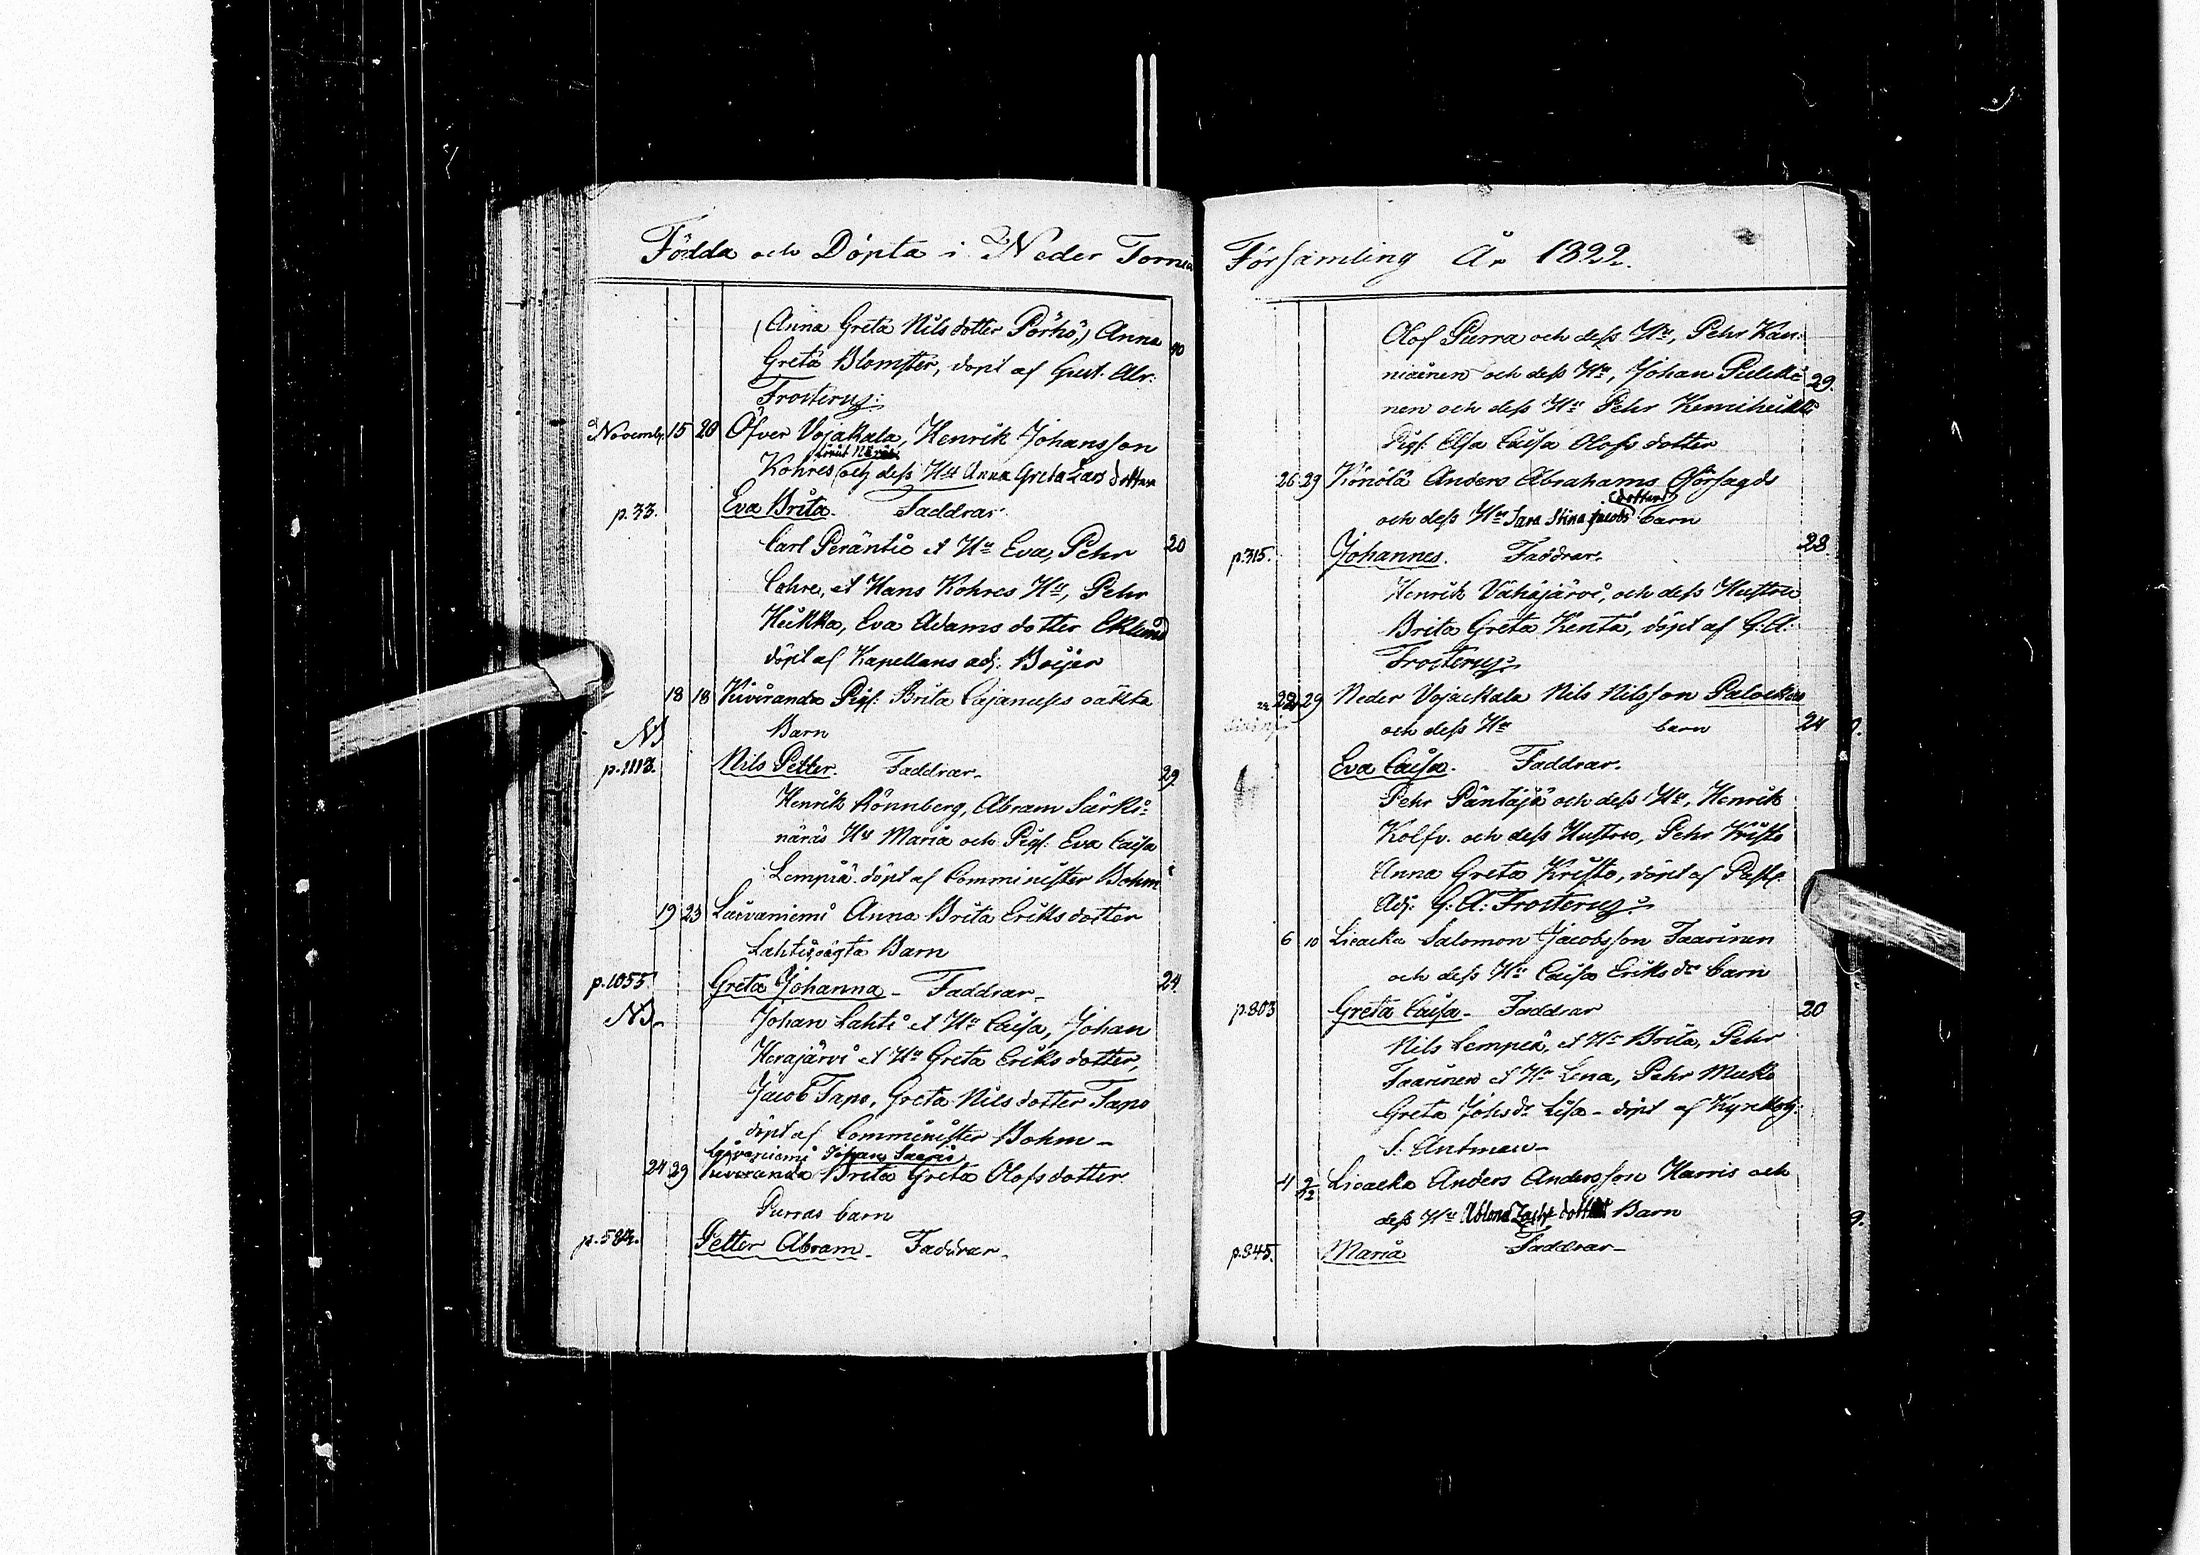 Födda och Döpta i Neder Tornea
(Anna Greta Nilsdotter Pörhö,) Anna 40
Greta Blomster, döpt af Gust. Abr:
Frosterus:
Novembr. 15 20 Öfver Vojakala, Henrik Johansson
Kohres och dess Hu Anna Greta Lars dotter
p.33. Eva Brita. Faddrar.
Carl Peräntie et Hu Eva, Pehr 20
Cohre, et Hans Kohres Hu, Pehr
Heikka, Eva Adams dotter Eklund
döpt af Kapellans adj. Boijer
18 18 Kiviranda Pig. Brita Cajanuses oäkta
Barn
NB
p.1113. Nils Petter. Faddrar. 29.
Henrik Rönnberg, Abram Särki-
näräs Hu Maria och Pig. Eva Caisa
Lempiä döpt af Comminister Bohm
19 23 Laivaniemi Anna Brita Eriks dotter
Lahtis oägta Barn
p.1055. Greta Johanna - Faddrar - 24.
NB. Johan Lahti et Hu Caisa, Johan
Herajärvi et Hu Greta Eriks dotter,
Jacob Tapo, Greta Nils dotter Tapo
döpt af Comminister Bohm -
Laivaniemi Johan
24 29 Kiviranda Brita Greta Olofs dotter
Purras barn
p.584. Petter Abram. Faddrar.
Församling År 1822.
Olof Purra och dess Hu, Pehr Kan-
niainen och dess Hu, Johan Pulcki- 29.
nen och dess Hu Pehr Kemiheikki
Pig. Elsa Caisa Olofs dotter
26 29 Könölä Anders Abrahams Försagds
dotters
och dess Hu Sara Stina Jacobs barn
p.315. Johannes. Faddrar. 28.
Henrik Vähäjärvi, och dess Hustru
Brita Greta Kenta, döpt af G.A.
Frosterus.
29 Neder Vojackala Nils Nilsson Palockas
och dess Hu barn 24
Eva Caisa. Faddrar.
Pehr Päntäjä och dess Hu, Henrik
Kolfv. och dess Hustru, Pehr Kristo
Anna Greta Kristo, döpt af Past.
Adj. G. A. Frosterus.
6 10 Licacka Salomon Jacobsson Taarinen
och dess Hu Caisa Eriks dr barn
p.803 Greta Caisa - Faddrar 20
Nils Lempeä, et Hu Brita, Pehr
Taarinen et Hu Lena, Pehr Mukka
Greta Johs dr Lisa - döpt af Kyrkoh:
S. Antman -
4 2/12 Licacka Anders Andersson Harris och
dess Hu dotters Barn
p.845. Maria Faddrar -